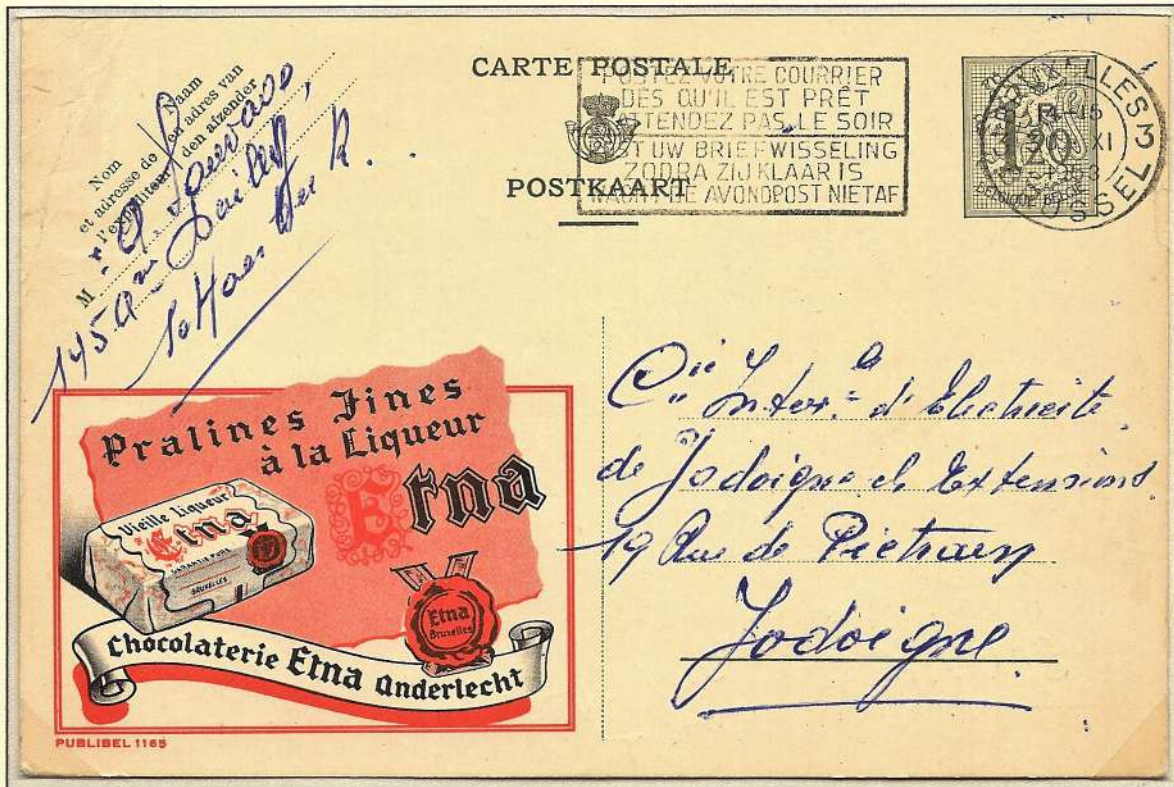 CARTE POSTALE
POSTKAART
POSTEZ VOTRE COURRIER
DÈS QU'IL EST PRÊT
N'ATTENDEZ PAS LE SOIR
POST UW BRIEFWISSELING
ZODRA ZIJ KLAAR IS
WACHT DE AVONDPOST NIET AF
BRUXELLES 3
BRUSSEL 3
15
XI
1 20
BELGIQUE BELGIE
Nom Naam
et adresse de en adres van
l'expéditeur den afzender
M
145
Cie Inter. le d'Electricité
de Jodoigne et Extensions
19 Rue de Piétrain
Jodoigne
Pralines Fines
à la Liqueur
Etna
Vieille Liqueur
Etna
GARANTIE PURE
BRUXELLES
Etna
Bruxelles
Chocolaterie Etna Anderlecht
PUBLIBEL 1165